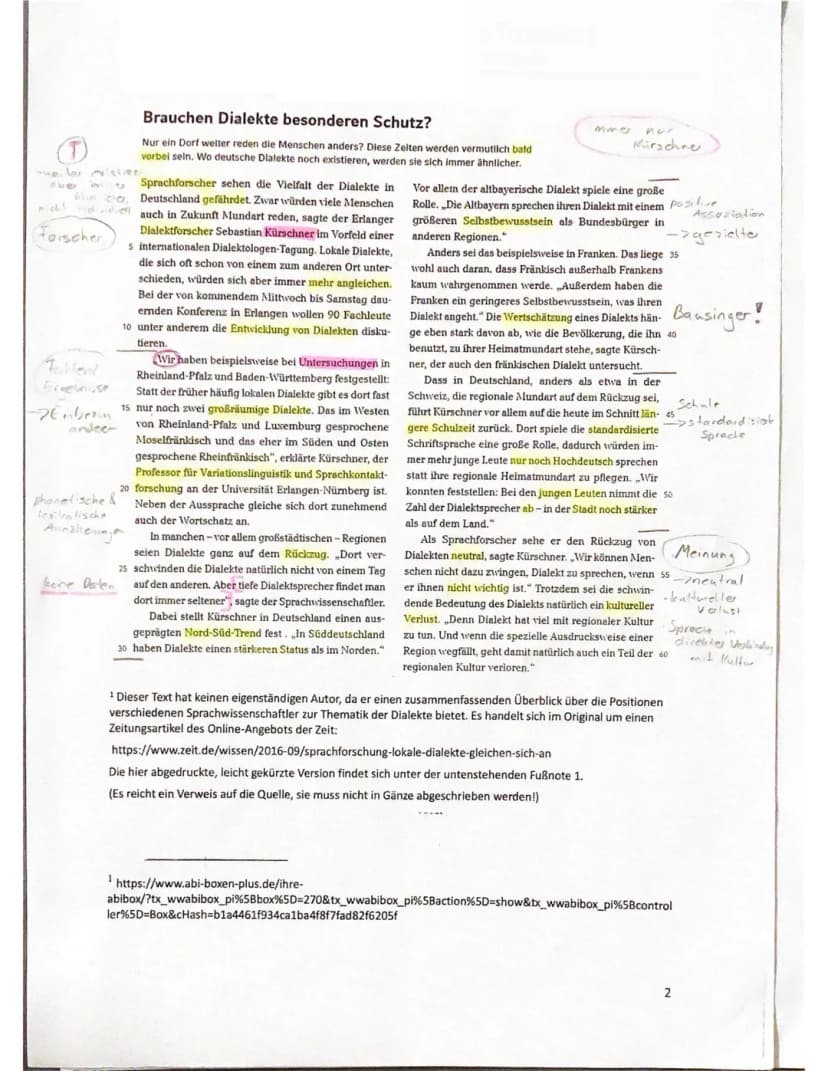 Brauchen Dialekte besonderen Schutz?
Nur ein Dorf weiter reden die Menschen anders? Diese Zeiten werden vermutlich bald
vorbei sein. Wo deutsche Dialekte noch existieren, werden sie sich immer ähnlicher.
immer nur
Kürschner
T
Forscher
Sprachforscher sehen die Vielfalt der Dialekte in
Deutschland gefährdet. Zwar würden viele Menschen
auch in Zukunft Mundart reden, sagte der Erlanger
Dialektforscher Sebastian Kürschner im Vorfeld einer
5 internationalen Dialektologen-Tagung. Lokale Dialekte,
die sich oft schon von einem zum anderen Ort unter-
schieden, würden sich aber immer mehr angleichen.
Bei der von kommendem Mittwoch bis Samstag dau-
ernden Konferenz in Erlangen wollen 90 Fachleute
10 unter anderem die Entwicklung von Dialekten disku-
tieren.
Wir haben beispielsweise bei Untersuchungen in
Rheinland-Pfalz und Baden-Württemberg festgestellt:
Statt der früher häufig lokalen Dialekte gibt es dort fast
15 nur noch zwei großräumige Dialekte. Das im Westen
von Rheinland-Pfalz und Luxemburg gesprochene
Moselfränkisch und das eher im Süden und Osten
gesprochene Rheinfränkisch“, erklärte Kürschner, der
Professor für Variationslinguistik und Sprachkontakt-
20 forschung an der Universität Erlangen-Nürnberg ist.
Neben der Aussprache gleiche sich dort zunehmend
auch der Wortschatz an.
In manchen – vor allem großstädtischen – Regionen
seien Dialekte ganz auf dem Rückzug. „Dort ver-
25 schwinden die Dialekte natürlich nicht von einem Tag
auf den anderen. Aber tiefe Dialektsprecher findet man
dort immer seltener“, sagte der Sprachwissenschaftler.
Dabei stellt Kürschner in Deutschland einen aus-
geprägten Nord-Süd-Trend fest. „In Süddeutschland
30 haben Dialekte einen stärkeren Status als im Norden.“
Zahlen/
Ergebnisse
phonetische &
lexikalische
Annäherungen
keine Daten
Vor allem der altbayerische Dialekt spiele eine große
Rolle. „Die Altbayern sprechen ihren Dialekt mit einem
größeren Selbstbewusstsein als Bundesbürger in
anderen Regionen.“
Anders sei das beispielsweise in Franken. Das liege 35
wohl auch daran, dass Fränkisch außerhalb Frankens
kaum wahrgenommen werde. „Außerdem haben die
Franken ein geringeres Selbstbewusstsein, was ihren
Dialekt angeht.“ Die Wertschätzung eines Dialekts hän-
ge eben stark davon ab, wie die Bevölkerung, die ihn 40
benutzt, zu ihrer Heimatmundart stehe, sagte Kürsch-
ner, der auch den fränkischen Dialekt untersucht.
Dass in Deutschland, anders als etwa in der
Schweiz, die regionale Mundart auf dem Rückzug sei,
führt Kürschner vor allem auf die heute im Schnitt län- 45
gere Schulzeit zurück. Dort spiele die standardisierte
Schriftsprache eine große Rolle, dadurch würden im-
mer mehr junge Leute nur noch Hochdeutsch sprechen
statt ihre regionale Heimatmundart zu pflegen. „Wir
konnten feststellen: Bei den jungen Leuten nimmt die 50
Zahl der Dialektsprecher ab – in der Stadt noch stärker
als auf dem Land.“
Als Sprachforscher sehe er den Rückzug von
Dialekten neutral, sagte Kürschner. „Wir können Men-
schen nicht dazu zwingen, Dialekt zu sprechen, wenn 55
er ihnen nicht wichtig ist.“ Trotzdem sei die schwin-
dende Bedeutung des Dialekts natürlich ein kultureller
Verlust. „Denn Dialekt hat viel mit regionaler Kultur
zu tun. Und wenn die spezielle Ausdrucksweise einer
Region wegfällt, geht damit natürlich auch ein Teil der 60
regionalen Kultur verloren.“
positive
Assoziation
–> gezielter
Bausinger!
Schule
–> standardisiert
Sprache
Meinung
–> neutral
- kultureller
Verlust
Sprache in
direkter Verbindung
mit Kultur
¹ Dieser Text hat keinen eigenständigen Autor, da er einen zusammenfassenden Überblick über die Positionen
verschiedenen Sprachwissenschaftler zur Thematik der Dialekte bietet. Es handelt sich im Original um einen
Zeitungsartikel des Online-Angebots der Zeit:
https://www.zeit.de/wissen/2016-09/sprachforschung-lokale-dialekte-gleichen-sich-an
Die hier abgedruckte, leicht gekürzte Version findet sich unter der untenstehenden Fußnote 1.
(Es reicht ein Verweis auf die Quelle, sie muss nicht in Gänze abgeschrieben werden!)
-----
¹ https://www.abi-boxen-plus.de/ihre-
abibox/?tx_wwabibox_pi%5Bbox%5D=270&tx_wwabibox_pi%5Baction%5D=show&tx_wwabibox_pi%5Bcontrol
ler%5D=Box&cHash=b1a4461f934ca1ba4f8f7fad82f6205f
2